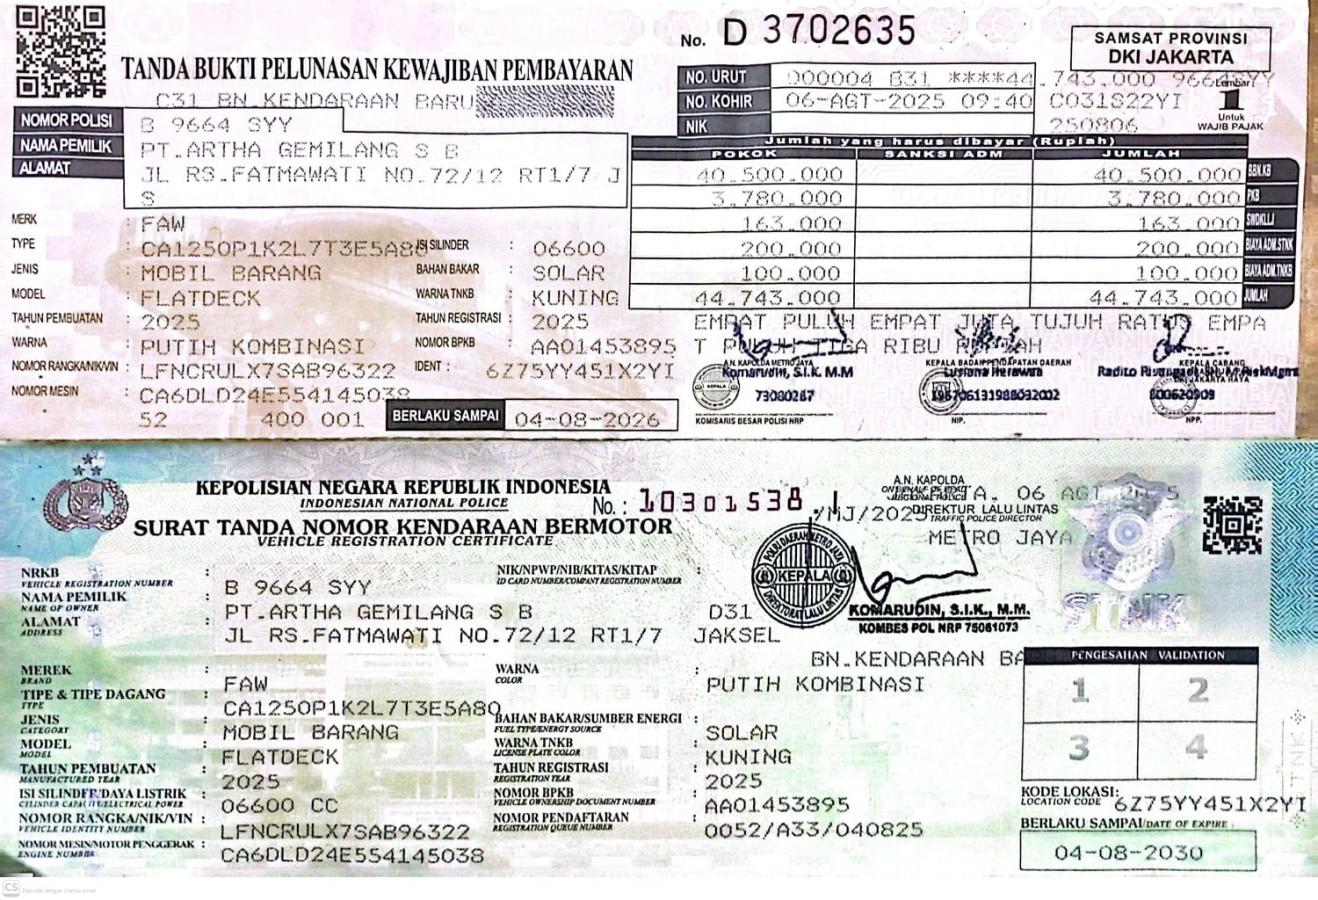 No. D 3702635
SAMSAT PROVINSI
DKI JAKARTA
TANDA BUKTI PELUNASAN KEWAJIBAN PEMBAYARAN
C31 BN.KENDARAAN BARU
NO. URUT 000004 B31 ****44.743.000 9664SYY
NO. KOHIR 06-AGT-2025 09:40 C031S22YI
NIK 250806
Lembar
1
Untuk
WAJIB PAJAK
NOMOR POLISI B 9664 SYY
NAMA PEMILIK PT.ARTHA GEMILANG S B
ALAMAT JL RS.FATMAWATI NO.72/12 RT1/7 J
S
Jumlah yang harus dibayar (Rupiah)
POKOK SANKSI ADM JUMLAH
40.500.000 40.500.000 BBN.KB
3.780.000 3.780.000 PKB
163.000 163.000 SWDKLLJ
200.000 200.000 BIAYA ADM.STNK
100.000 100.000 BIAYA ADM.TNKB
44.743.000 44.743.000 JUMLAH
MERK : FAW
TYPE : CA1250P1K2L7T3E5A80 ISI SILINDER : 06600
JENIS : MOBIL BARANG BAHAN BAKAR : SOLAR
MODEL : FLATDECK WARNA TNKB : KUNING
TAHUN PEMBUATAN : 2025 TAHUN REGISTRASI : 2025
WARNA : PUTIH KOMBINASI NOMOR BPKB : AA01453895
NOMOR RANGKA/NIK/VIN : LFNCRULX7SAB96322 IDENT : 6Z75YY451X2YI
NOMOR MESIN : CA6DLD24E554145038
52 400 001 BERLAKU SAMPAI 04-08-2026
EMPAT PULUH EMPAT JUTA TUJUH RATUS EMPA
T PULUH TIGA RIBU RUPIAH
A.N. KAPOLDA METRO JAYA
Komarudin, S.I.K. M.M
73080267
KOMISARIS BESAR POLISI NRP
KEPALA BADAN PENDAPATAN DAERAH
Lusiana Herawati
196706131988032002
NIP.
KEPALA CABANG
DKI JAKARTA RAYA
Radito
800620909
NPP.
KEPOLISIAN NEGARA REPUBLIK INDONESIA
INDONESIAN NATIONAL POLICE
No.: 10301538.I
/MJ/2025
SURAT TANDA NOMOR KENDARAAN BERMOTOR
VEHICLE REGISTRATION CERTIFICATE
A.N. KAPOLDA
A, 06 AGT 2025
DIREKTUR LALU LINTAS
TRAFFIC POLICE DIRECTOR
METRO JAYA
KEPALA
DIREKTORAT LALU LINTAS
KOMARUDIN, S.I.K., M.M.
KOMBES POL NRP 75061073
STNK
NRKB : B 9664 SYY
VEHICLE REGISTRATION NUMBER
NIK/NPWP/NIB/KITAS/KITAP :
ID CARD NUMBER/COMPANY REGISTRATION NUMBER
NAMA PEMILIK : PT.ARTHA GEMILANG S B D31
NAME OF OWNER
ALAMAT : JL RS.FATMAWATI NO.72/12 RT1/7 JAKSEL
ADDRESS
BN.KENDARAAN BA
MEREK : FAW
BRAND
WARNA : PUTIH KOMBINASI
COLOR
TIPE & TIPE DAGANG : CA1250P1K2L7T3E5A80
TYPE
JENIS : MOBIL BARANG
CATEGORY
BAHAN BAKAR/SUMBER ENERGI : SOLAR
FUEL TYPE/ENERGY SOURCE
MODEL : FLATDECK
MODEL
WARNA TNKB : KUNING
LICENSE PLATE COLOR
TAHUN PEMBUATAN : 2025
MANUFACTURED YEAR
TAHUN REGISTRASI : 2025
REGISTRATION YEAR
ISI SILINDER/DAYA LISTRIK : 06600 CC
CYLINDER CAPACITY/ELECTRICAL POWER
NOMOR BPKB : AA01453895
VEHICLE OWNERSHIP DOCUMENT NUMBER
NOMOR RANGKA/NIK/VIN : LFNCRULX7SAB96322
VEHICLE IDENTITY NUMBER
NOMOR PENDAFTARAN : 0052/A33/040825
REGISTRATION QUEUE NUMBER
NOMOR MESIN/MOTOR PENGGERAK : CA6DLD24E554145038
ENGINE NUMBER
PENGESAHAN VALIDATION
1 2
3 4
KODE LOKASI:
LOCATION CODE 6Z75YY451X2YI
BERLAKU SAMPAI/DATE OF EXPIRE :
04-08-2030
STNK
CS Dipindai dengan CamScanner